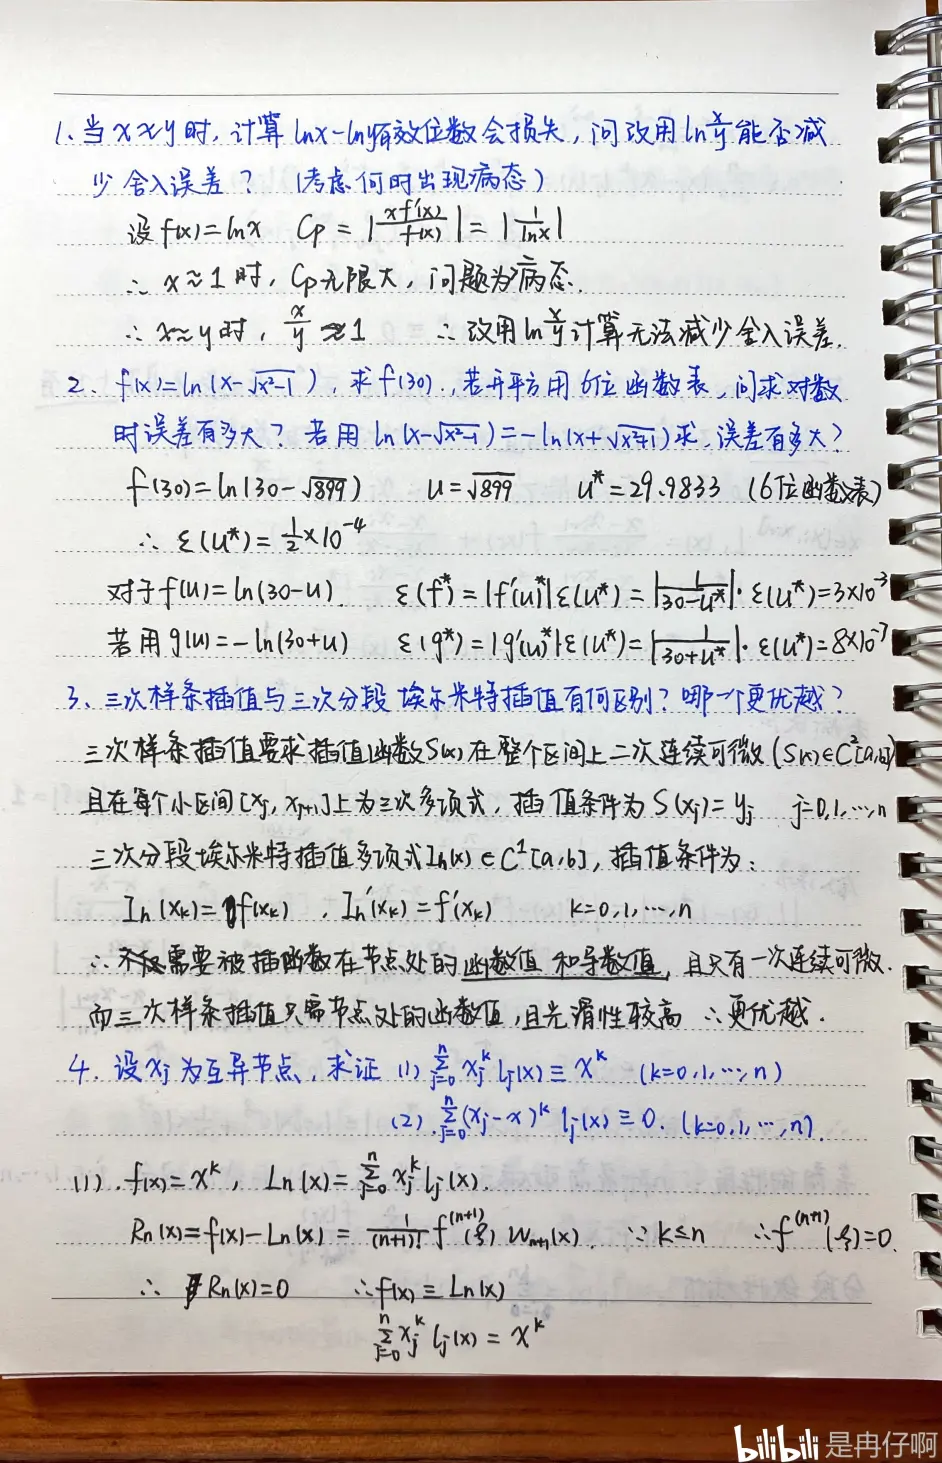 1、当 x≈y 时，计算 lnx-lny有效位数会损失，问改用 ln x/y 能否减
少舍入误差？（考虑何时出现病态）
设 f(x)=lnx Cp = |xf'(x)/f(x)| = |1/lnx|
∴ x≈1 时，Cp无限大，问题为病态.
∴ x≈y 时，x/y ≈1 ∴ 改用 ln x/y 计算无法减少舍入误差.
2、f(x)=ln(x-√(x²-1))，求 f(30)，若开平方用6位函数表，问求对数
时误差有多大？若用 ln(x-√(x²-1))=-ln(x+√(x²+1))求，误差有多大？
f(30)=ln(30-√899) u=√899 u*=29.9833 (6位函数表)
∴ ε(u*)=1/2×10⁻⁴
对于f(u)=ln(30-u). ε(f*)=|f'(u*)|ε(u*)=|1/(30-u*)|·ε(u*)=3×10⁻³
若用g(u)=-ln(30+u) ε(g*)=|g'(u*)|ε(u*)=|1/(30+u*)|·ε(u*)=8×10⁻⁷
3、三次样条插值与三次分段埃尔米特插值有何区别？哪一个更优越？
三次样条插值要求插值函数S(x)在整个区间上二次连续可微(S(x)∈C²[a,b])
且在每个小区间[xⱼ, xⱼ₊₁]上为三次多项式，插值条件为 S(xⱼ)=yⱼ j=0,1,…,n
三次分段埃尔米特插值多项式Iₙ(x)∈C¹[a,b]，插值条件为：
Iₙ(xₖ)=f(xₖ)，Iₙ'(xₖ)=f'(xₖ) k=0,1,…,n
∴ 不仅需要被插函数在节点处的函数值和导数值，且只有一次连续可微.
而三次样条插值只需节点处的函数值，且光滑性较高 ∴更优越.
4、设 xⱼ 为互异节点，求证 (1) Σⁿⱼ₌₀ xⱼᵏ lⱼ(x)≡xᵏ (k=0,1,…,n)
(2). Σⁿⱼ₌₀ (xⱼ-x)ᵏ lⱼ(x)≡0. (k=0,1,…,n).
(1). f(x)=xᵏ, Lₙ(x)=Σⁿⱼ₌₀ xⱼᵏ lⱼ(x).
Rₙ(x)=f(x)-Lₙ(x)=1/(n+1)! f⁽ⁿ⁺¹⁾(ξ) Wₙ₊₁(x). ∵ k≤n ∴f⁽ⁿ⁺¹⁾(ξ)=0.
∴ Rₙ(x)=0 ∴f(x)≡Lₙ(x)
Σⁿⱼ₌₀ xⱼᵏ lⱼ(x)=xᵏ
bilibili 是冉仔啊